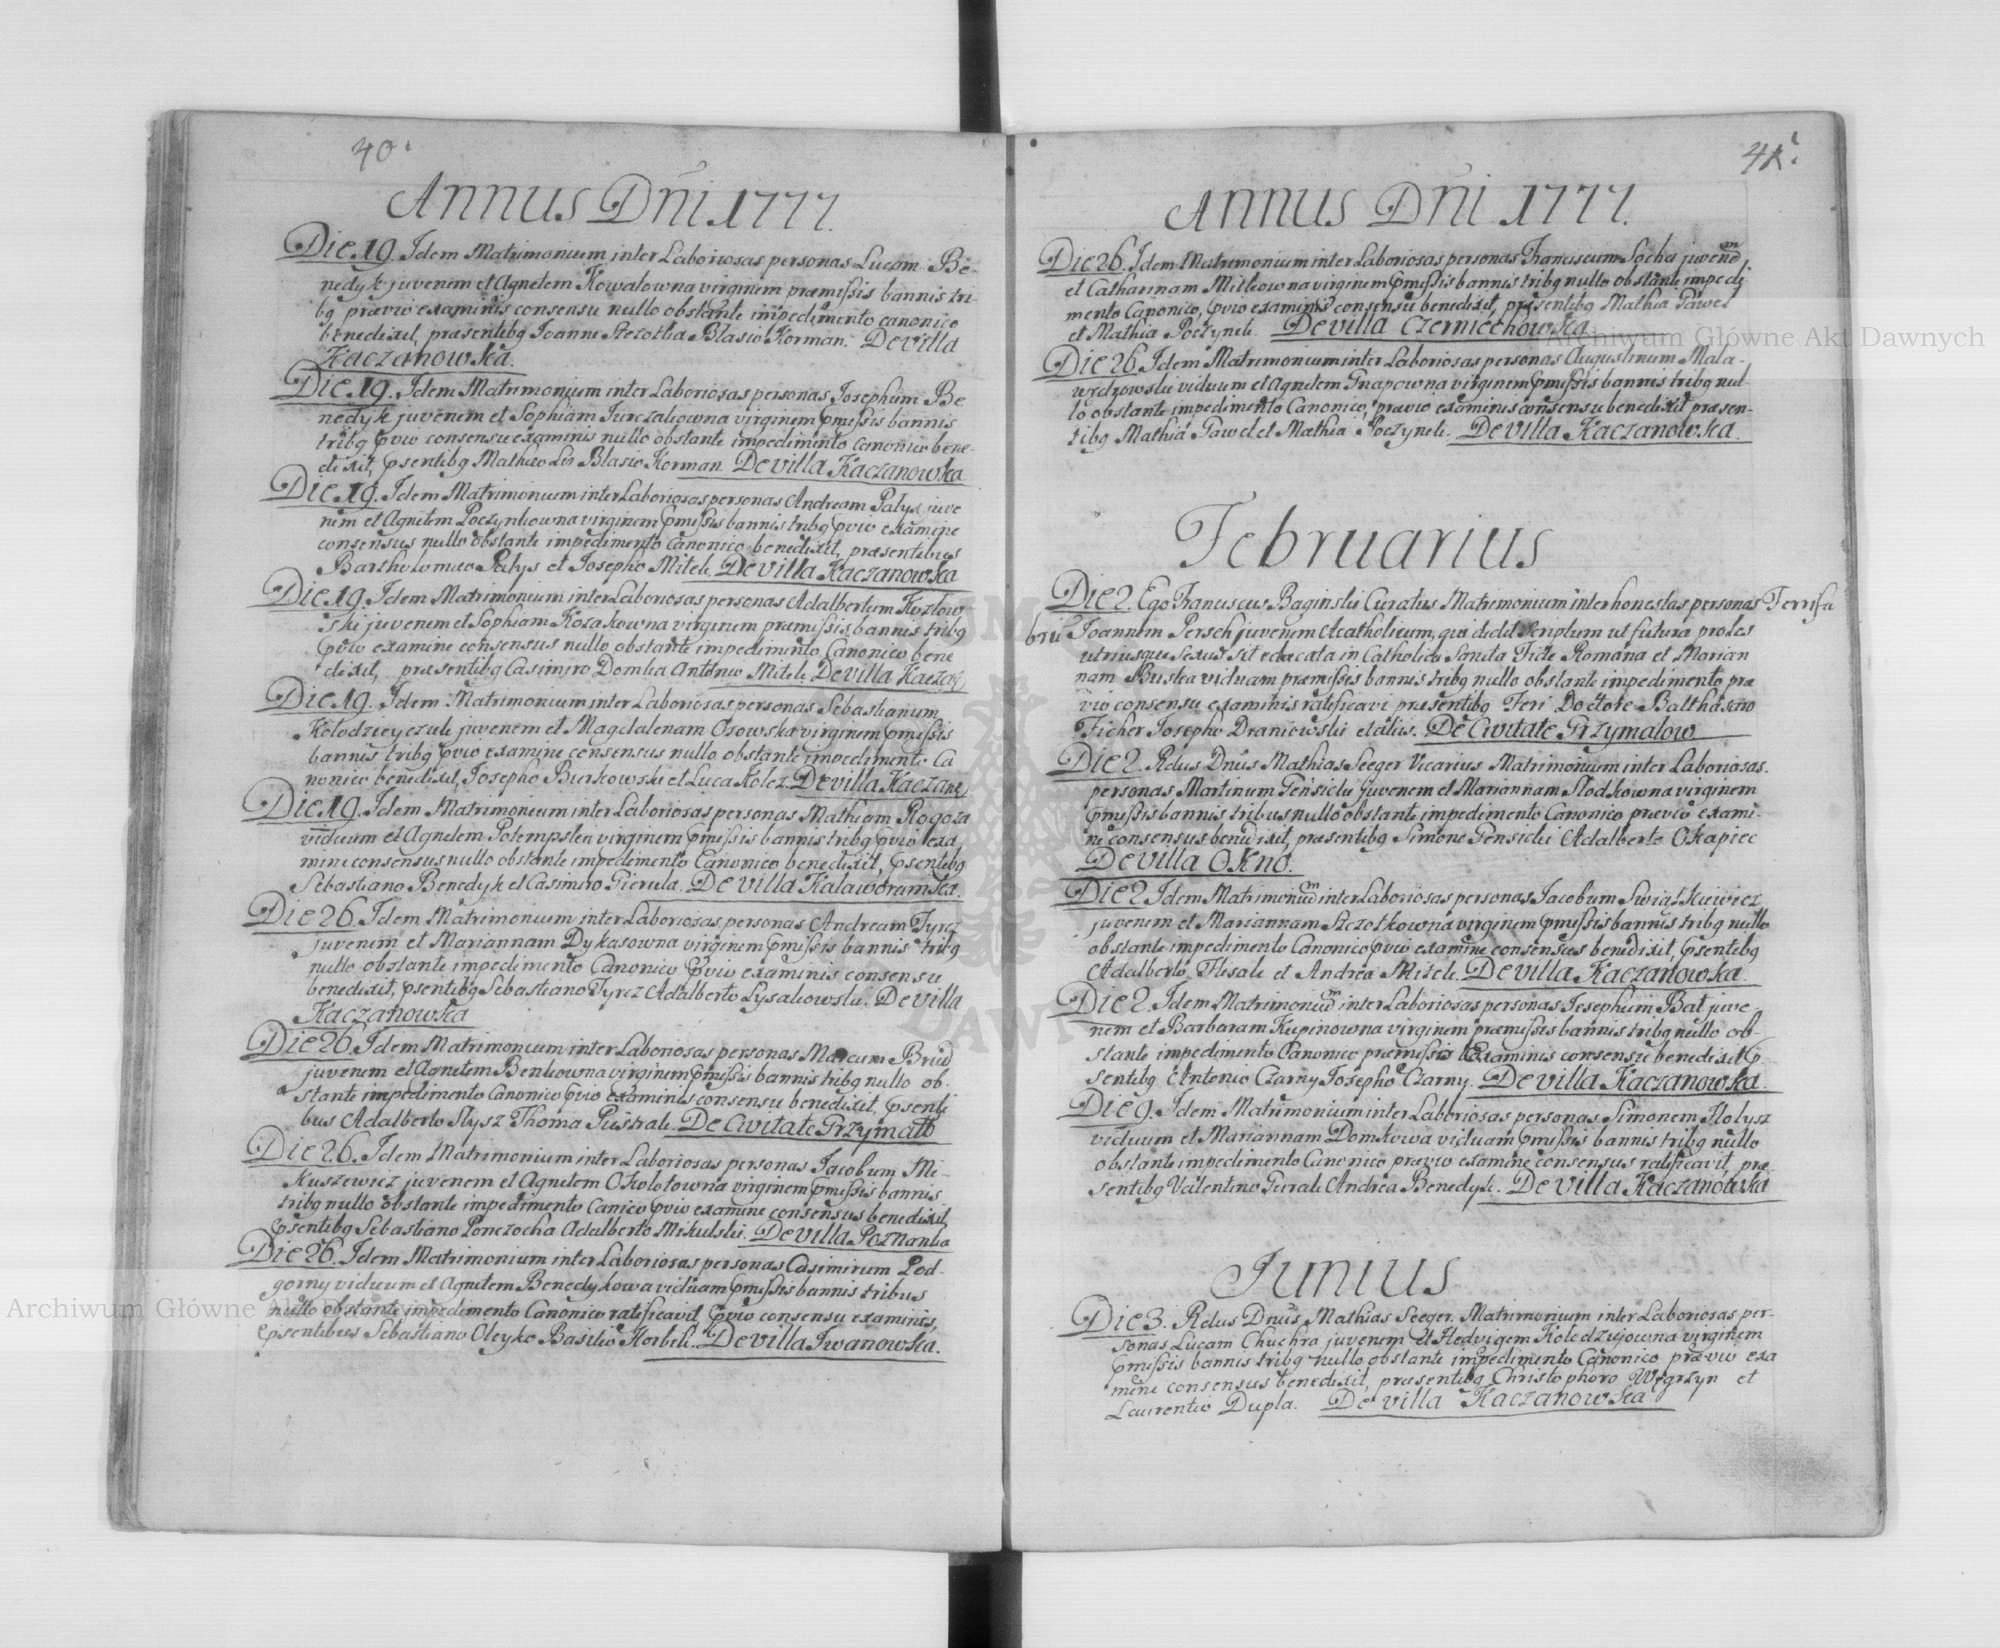 40
Annus Dni 1777.
Die 19. Idem Matrimonium inter Laboriosas personas Lucam Be-
nedyk juvenem et Agnetem Kowalowna virginem præmissis bannis tri-
bq prævio examinis consensu nullo obstante impedimento canonico
benedixit, præsentibq Joanne Blasio Korman. De villa
Kaczanowska.
Die 19. Idem Matrimonium inter Laboriosas personas Josephum Be
nedyk juvenem et Sophiam virginem pmissis bannis
tribq pvio consensu examinis nullo obstante impedimento canonico bene-
dixit, psentibq Mathæo Lis Blasio Korman De villa Kaczanowska
Die 19. Idem Matrimonium inter Laboriosas personas Andream Patys juve
nem et Agnetem virginem pmissis bannis tribq pvio examine
consensus nullo obstante impedimento Canonico benedixit, præsentibus
Bartholomæo Patys et Josepho Mitek. De villa Kaczanowska
Die 19. Idem Matrimonium inter Laboriosas personas Adalbertum Kozlow
ski juvenem et Sophiam Kozakowna virginem præmissis bannis tribq
pvio examine consensus nullo obstante impedimento Canonico bene
dixit, præsentibq Casimiro Domka Antonio Mitek De villa Kaczaꝫ
Die 19. Idem Matrimonium inter Laboriosas personas Sebastianum
Kołodzieyczuk juvenem et Magdalenam Osowska virginem pmissis
bannis tribq pvio examine consensus nullo obstante impedimento Ca
nonico benedixit, Josepho Burkowski et Luca Kolcz. De villa Kaczanꝫ
Die 19. Idem Matrimonium inter Laboriosas personas Mathiam Rogoza
viduum et Agnetem virginem pmissis bannis tribq pvio exa
mine consensus nullo obstante impedimento Canonico benedixit, psentibq
Sebastiano Benedyk et Casimiro Gierula. De villa
Die 26. Idem Matrimonium inter Laboriosas personas Andream Tyrcz
juvenem et Mariannam Dykasowna virginem pmissis bannis tribq
nullo obstante impedimento Canonico pvio examinis consensu
benedixit, psentibq Sebastiano Tyrcz Adalberto Lysakowski. De villa
Kaczanowska
Die 26. Idem Matrimonium inter Laboriosas personas Marcum Brud
juvenem et Agnetem Benkowna virginem pmissis bannis tribq nullo ob-
stante impedimento Canonico pvio examinis consensu benedixit, psenti
bus Adalberto Slysz Thoma De Civitate Grzymalo
Die 26. Idem Matrimonium inter Laboriosas personas Jacobum Mi-
kuszewicz juvenem et Agnetem Okolotowna virginem pmissis bannis
tribq nullo obstante impedimento Canico pvio examine consensus benedixit,
psentibq Sebastiano Ponczocha Adalberto Mikulski. De villa Poznanka
Die 26. Idem Matrimonium inter Laboriosas personas Casimirum Pod-
gorny viduum et Agnetem Benedykowa viduam pmissis bannis tribus
nullo obstante impedimento Canonico ratificavit pvio consensu examinis,
psentibus Sebastiano Oleyko Basilio Horbik. De villa Iwanowska.
41
Annus Dni 1777.
Die 26. Idem Matrimonium inter Laboriosas personas Franciscum Socha juvenem
et Catharinam Mitkowna virginem pmissis bannis tribq nullo obstante impedi
mento Canonico, pvio examinis consensu benedixit, præsentibq Mathia Pawel
et Mathia Poczynek. De villa Czerniechowska
Die 26. Idem Matrimonium inter Laboriosas personas Augustinum Mala-
viduum et Agnetem Gnapowna virginem pmissis bannis tribq nul-
lo obstante impedimento Canonico, prævio examinis consensu benedixit præsen-
tibq Mathia Pawel et Mathia Poczynek. De villa Kaczanowska.
Februarius
Die 2. Ego Franciscus Baginski Curatus Matrimonium inter honestas personas
Joannem Persch juvenem Acatholicum, qui dedit scriptum ut futura proles
utriusque sexus sit educata in Catholica Sancta Fide Romana et Marian
nam Buska viduam præmissis bannis tribq nullo obstante impedimento præ
vio consensu examinis ratificavi præsentibq Doctore Balthasaro
Ficher Josepho Draniowski et aliis. De Civitate Grzymalow
Die 2. Rdus Dnus Mathias Seeger Vicarius Matrimonium inter Laboriosas.
personas Martinum Gensicki juvenem et Mariannam virginem
pmissis bannis tribus nullo obstante impedimento Canonico prævio exami-
ne consensus benedixit, præsentibq Simone Gensicki Adalberto Okapiec
De villa Okno.
Die 2. Idem Matrimonium inter Laboriosas personas Jacobum Swiatkiewicz
juvenem et Mariannam Szczotkowna virginem pmissis bannis tribq nullo
obstante impedimento Canonico pvio examine consensus benedixit, psentibq
Adalberto Flisak et Andrea Mitek. De villa Kaczanowska.
Die 2. Idem Matrimonium inter Laboriosas personas Josephum Bat juve-
nem et Barbaram Kupinowna virginem præmissis bannis tribq nullo ob-
stante impedimento Canonico præmissis Examinis consensu benedixit p-
sentibq Antonio Czarny Josepho Czarny. De villa Kaczanowska.
Die 9. Idem Matrimonium inter Laboriosas personas Simonem
viduum et Mariannam Domkowa viduam pmissis bannis tribq nullo
obstante impedimento Canonico prævio examine consensus ratificavit, præ-
sentibq Valentino Gural Andrea Benedyk. De villa Kaczanowska
Junius
Die 3. Rdus Dnus Mathias Seeger Matrimonium inter Laboriosas per-
sonas Lucam Chuchra juvenem et Hedvigem virginem
pmissis bannis tribq nullo obstante impedimento Canonico prævio exa
mine consensus benedixit, præsentibq Christophoro Węgrzyn et
Laurentio Dupla. De villa Kaczanowska
Archiwum Główne Akt Dawnych